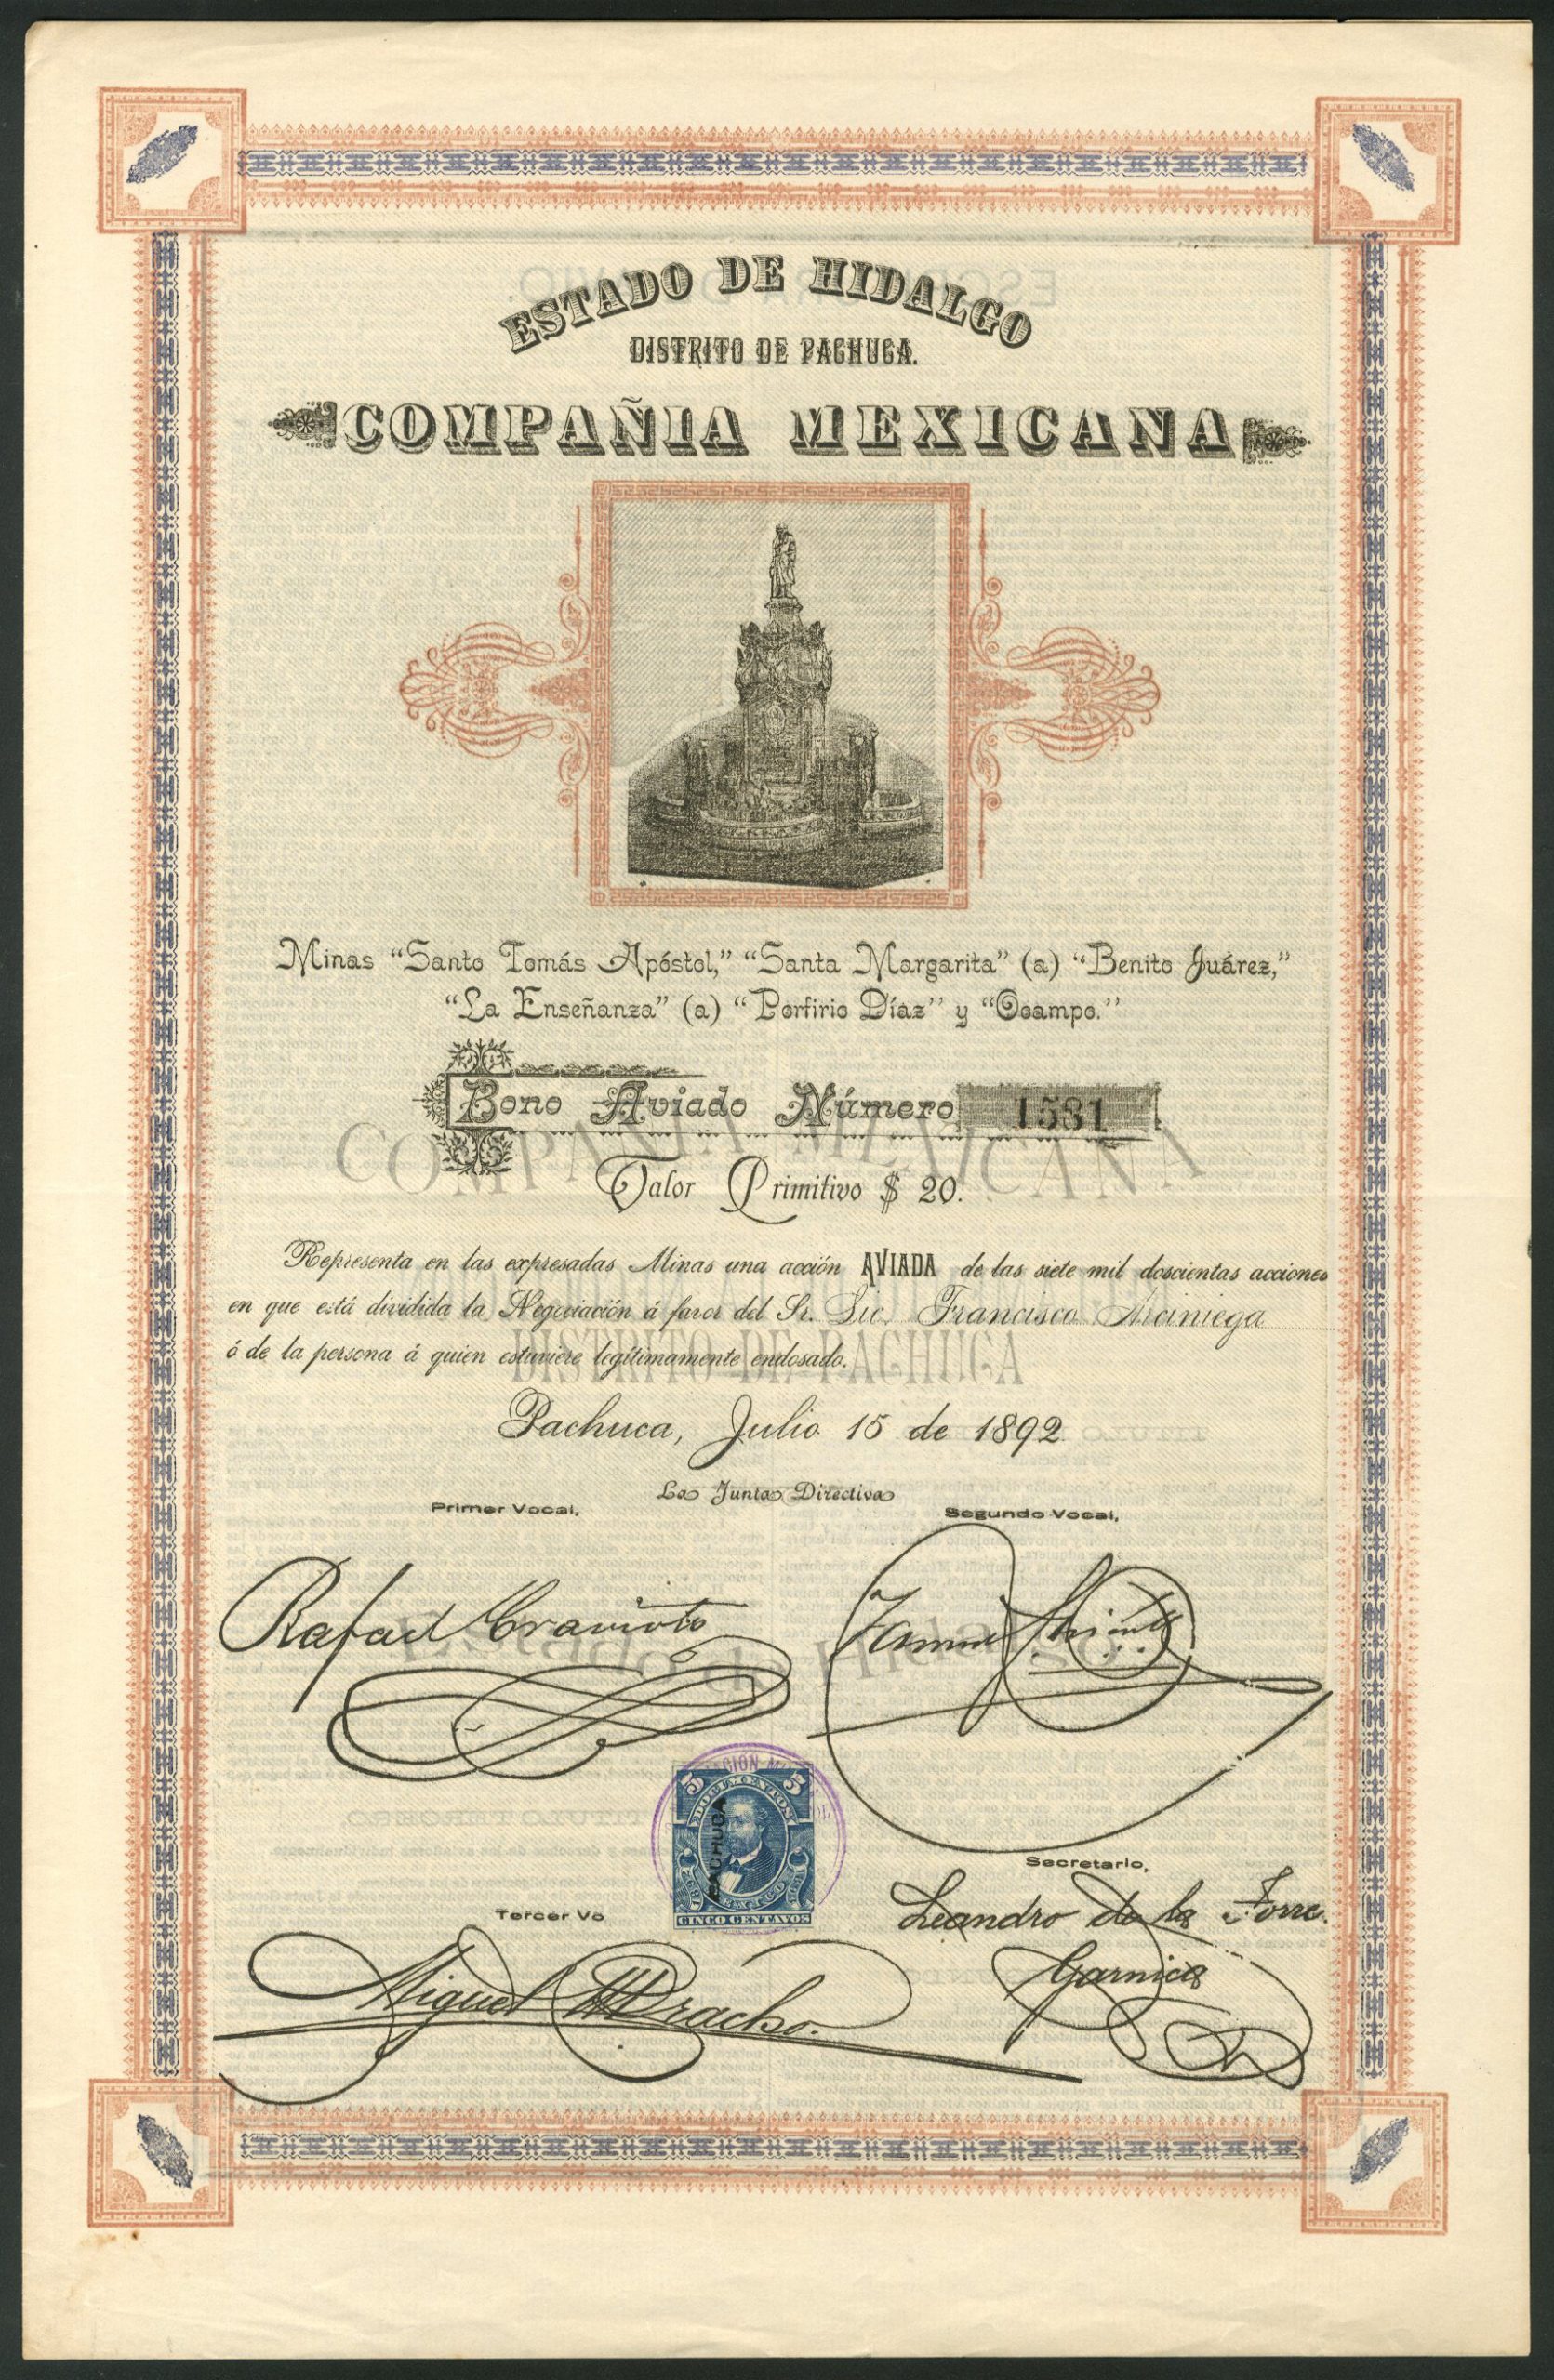 ESTADO DE HIDALGO
DISTRITO DE PACHUCA.
COMPAÑIA MEXICANA
Minas "Santo Tomás Apóstol," "Santa Margarita" (a) "Benito Juárez,"
"La Enseñanza" (a) "Porfirio Díaz" y "Ocampo."
Bono Aviado Número 1581
COMPAÑIA MEXICANA
Valor Primitivo $ 20.
Representa en las expresadas Minas una acción AVIADA de las siete mil doscientas acciones
en que está dividida la Negociación á favor del Sr. Lic. Francisco Arciniega
ó de la persona á quien estuviere legítimamente endosado.
DISTRITO DE PACHUCA
Pachuca, Julio 15 de 1892
La Junta Directiva
Primer Vocal,
Segundo Vocal,
Rafael Cravioto
Estado de Hidalgo
5 5
DOCUMENTOS
PACHUCA
MEXICO
CINCO CENTAVOS
Secretario,
Leandro de la Torre
Garnica
Tercer Vo
Miguel